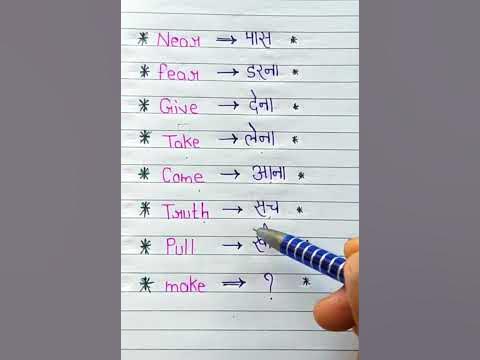 * Near → पास *
* fear → डरना *
* Give → देना *
* Take → लेना *
* Come → आना *
* Truth → सच *
* Pull →
* make → ? *